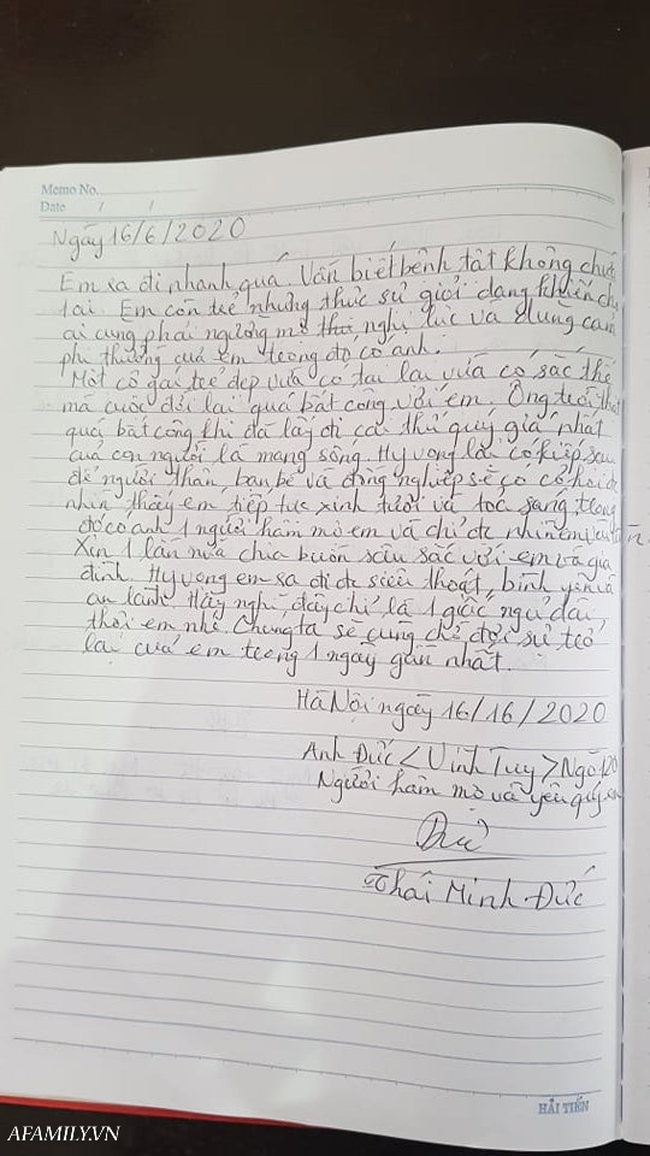 Memo No.
Date / /
Ngày 16/6/2020
Em ra đi nhanh quá. Vẫn biết bệnh tật không chừa
1 ai. Em còn trẻ nhưng thực sự giỏi dang khiến cho
ai cũng phải ngưỡng mộ nghị lực và dũng cảm
phi thường của em trong đó có anh.
Một cô gái trẻ đẹp vừa có tài lại vừa có sắc thế
mà cuộc đời lại quá bất công với em. Ông trời thật
quá bất công khi đã lấy đi cái thứ quý giá nhất
của con người là mạng sống. Hy vọng lần có kiếp sau
để người thân, bạn bè và đồng nghiệp sẽ có cơ hội đc
nhìn thấy em tiếp tục xinh tươi và toả sáng, trong
đó có anh 1 người hâm mộ em và chỉ đc nhìn em
Xin 1 lần nữa chia buồn sâu sắc với em và gia
đình. Hy vọng em ra đi đc siêu thoát, bình yên và
an lành. Hãy nghĩ đây chỉ là 1 giấc ngủ dài
thôi em nhé. Chúng ta sẽ cùng chờ đợi sự trở
lại của em trong 1 ngày gần nhất.
Hà Nội ngày 16/16/2020
Anh Đức <Vĩnh Tuy> Ngõ 120
Người hâm mộ và yêu quý em
Đức
Thái Minh Đức
HẢI TIẾN
AFAMILY.VN